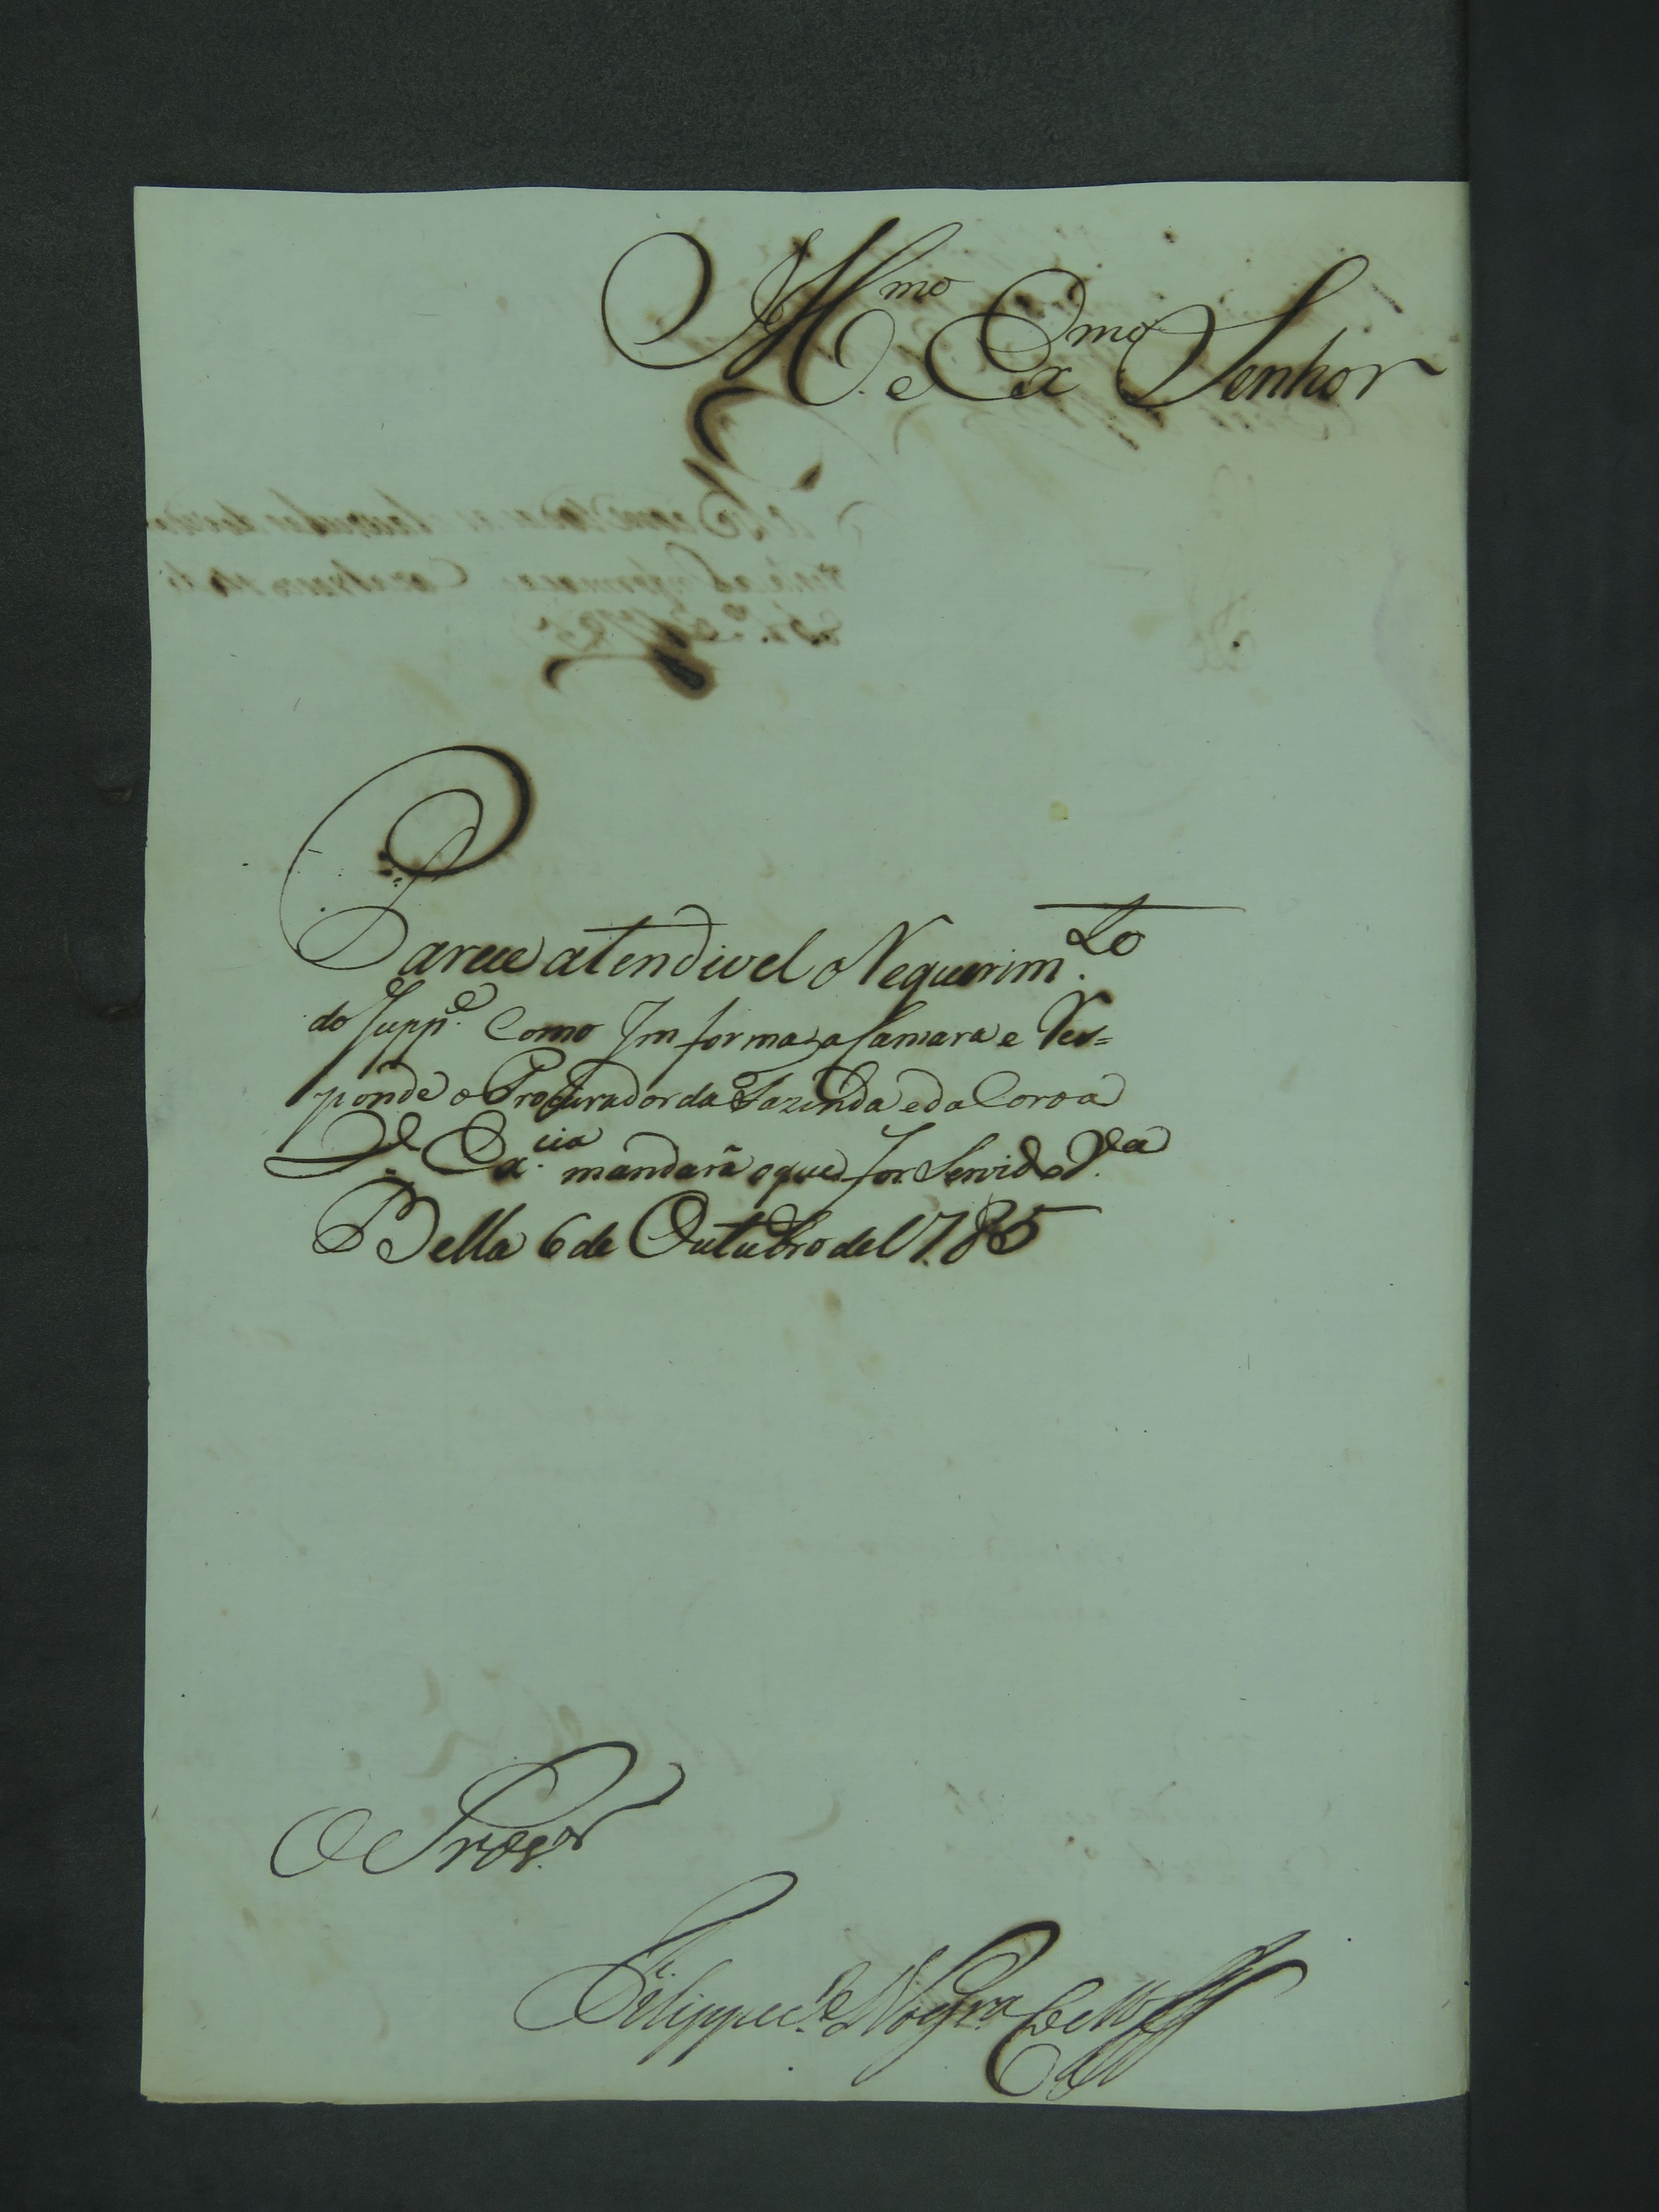 Ill.mo e Ex.mo Senhor
Parece atendivel o Requerim.to
do Supp.e Como Informa a Camara e Res=
ponde o Procurador da Fazenda e da Coroa
V. Ex.cia mandará o que for Servido V.a
Bella 6 de Outubro de 1785
O Prov.or
Filippe